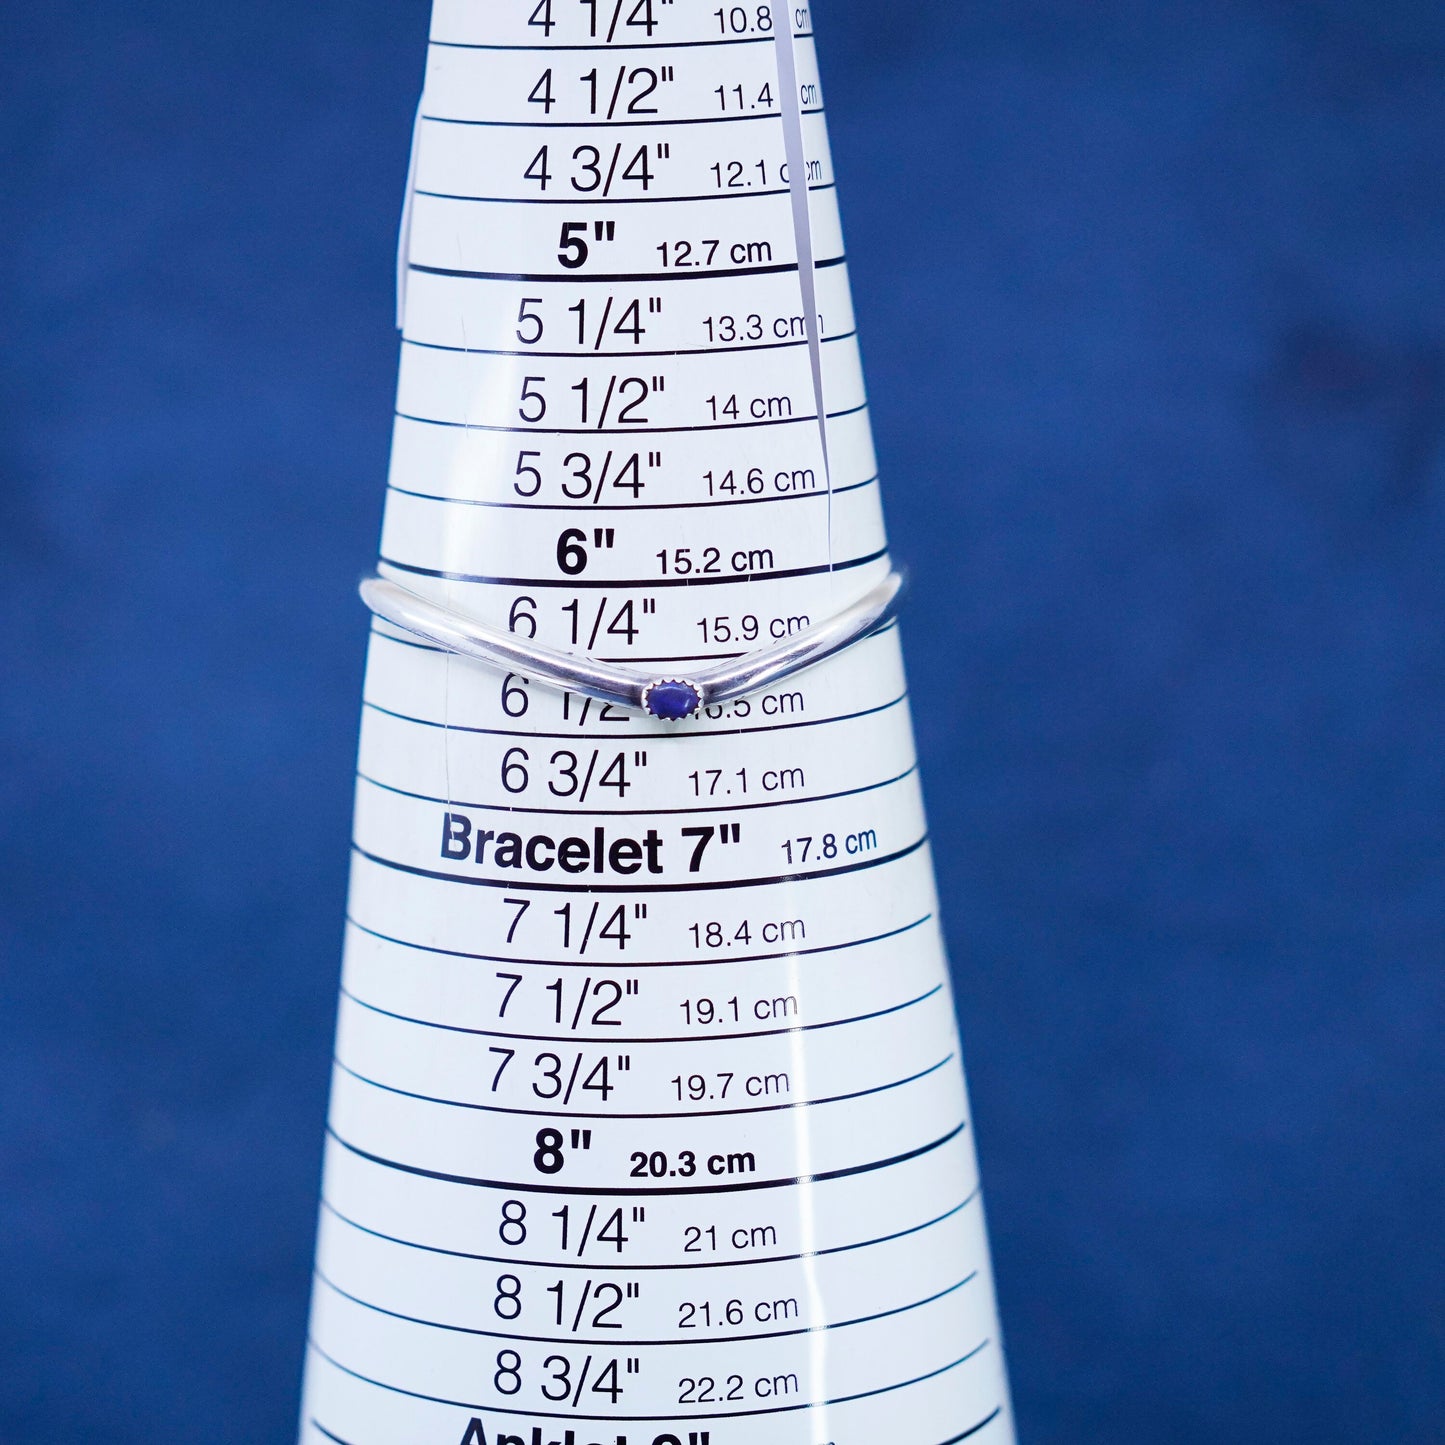 4 1/4" 10.8 cm
4 1/2" 11.4 cm
4 3/4" 12.1 cm
5" 12.7 cm
5 1/4" 13.3 cm
5 1/2" 14 cm
5 3/4" 14.6 cm
6" 15.2 cm
6 1/4" 15.9 cm
6 1/2 16.5 cm
6 3/4" 17.1 cm
Bracelet 7" 17.8 cm
7 1/4" 18.4 cm
7 1/2" 19.1 cm
7 3/4" 19.7 cm
8" 20.3 cm
8 1/4" 21 cm
8 1/2" 21.6 cm
8 3/4" 22.2 cm
Anklet 9"